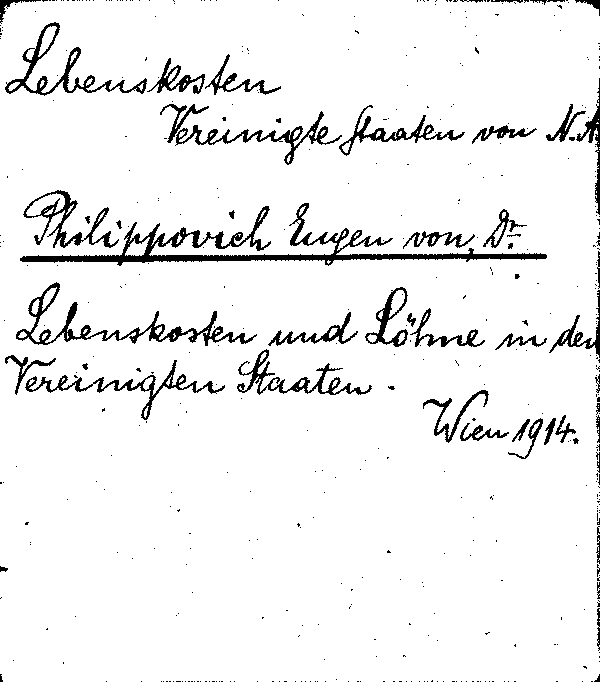 Lebenskosten
Vereinigte Staaten von N.A.
Philippovich Eugen von, Dr.
Lebenskosten und Löhne in den
Vereinigten Staaten.
Wien 1914.